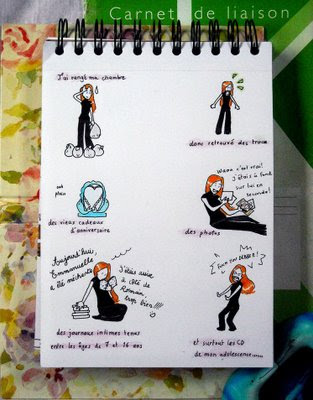 Carnet de liaison
J'ai rangé ma chambre
donc retrouvé des trucs
des vieux cadeaux
d'anniversaire
Waou c'est vrai!
J'étais à fond
sur lui en
seconde!
des photos
Aujourd'hui,
Emmanuelle
a été méchante
J'étais assise
à côté de
Romain,
trop bien!!!
des journaux intimes tenus
entre les âges de 7 et 16 ans
et surtout les CD
de mon adolescence